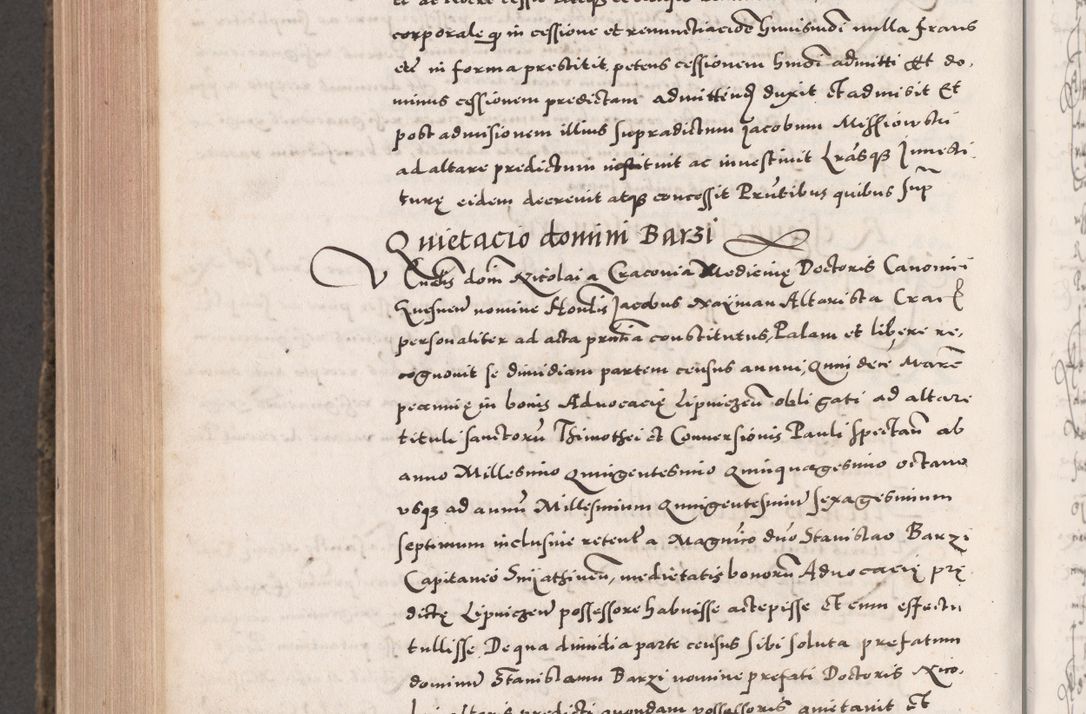 corporale q in cessione et renunctiacione huiusmodi nulla fraus
etc in forma prestitit petens cessionem hmdi admitti Et do-
minus cessionem predictam admittend duxit et admisit Et
post admisionem illius supradictum Jacobum
ad altare predictum instituit ac investivit Lrasq Investi
turę eidem decrevit atq concossit Prntibus quibus sup
Quietacio domini Barzi
Vndis domi Nicolai a Cracovia Medicinę Doctoris Canonici
nomine Hondis Jacobus Altarista Crac
personaliter ad acta prntia constitutus, Palam et libere re-
cognovit se dimidiam partem census annui, Quindeci Marcr
pecunię in bonis Advocacię Lipniczen obligati ad altare
tituli sanctoru Thimothei et Conversionis Pauli spectan ab
anno Millesimo Quingentesimo Quinquagesimo octavo
usq ad annu Millesimum Quingentesimu sexagesimum
septimum inclusive retent a Magnico dno Stanislao Barzi
Capitaneo Sniathinen, medietatis bonoru Advocacię prę
dictę Lipniczen possessore habuisse accepisse Et cum effectu
tullisse De qua dimidia parte census sibi soluta prefatum
dominu Stanislaum Barzi nomine prefati Doctoris Nico-
lai altaris predicti quondam possessoris quietavit Et